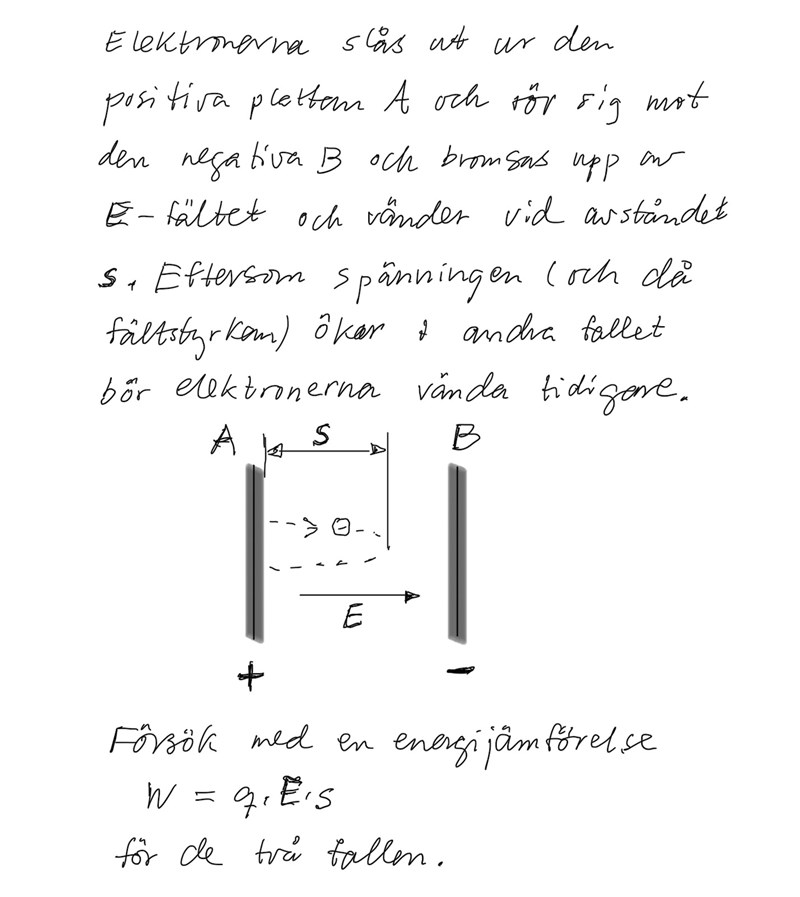 Elektronerna slås ut ur den
positiva plattan A och rör sig mot
den negativa B och bromsas upp av
E-fältet och vänder vid avståndet
s. Eftersom spänningen (och då
fältstyrkan) ökar i andra fallet
bör elektronerna vända tidigare.
A S B
E
+ −
Försök med en energijämförelse
W = q·E·s
för de två fallen.